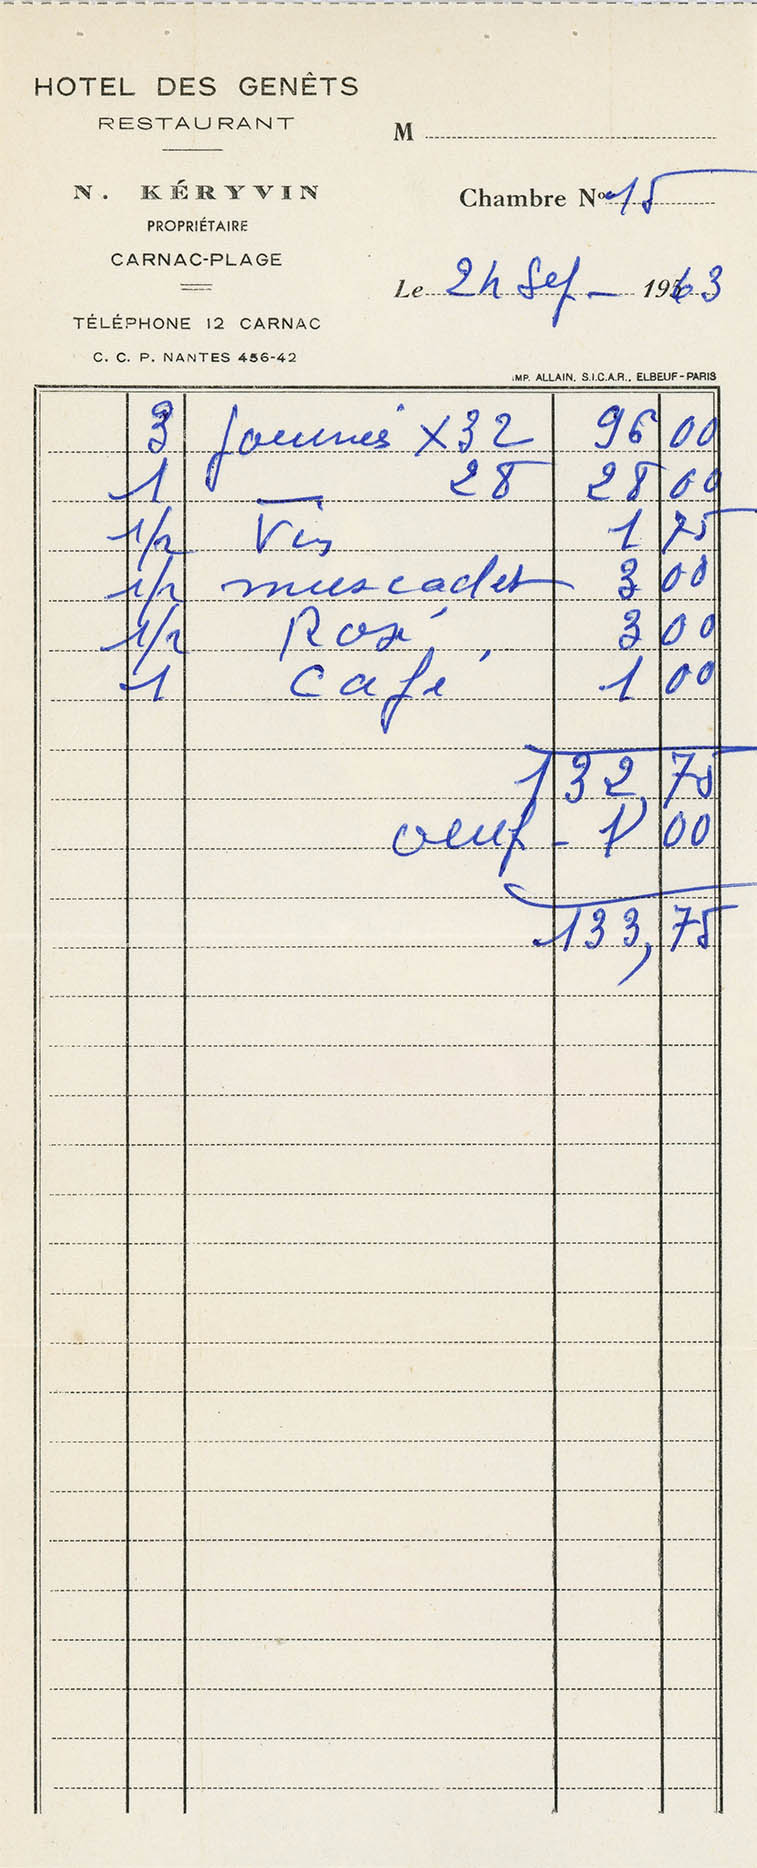 HOTEL DES GENÊTS
RESTAURANT
N. KÉRYVIN
PROPRIÉTAIRE
CARNAC-PLAGE
TÉLÉPHONE 12 CARNAC
C. C. P. NANTES 456-42
M
Chambre Nº 15
Le 24 Sep - 1963
IMP. ALLAIN, S.I.C.A.R., ELBEUF-PARIS
3 journées x 32 96 00
1 — 28 28 00
1/2 Vin 1 75
1/2 muscadet 3 00
1/2 Rosé 3 00
1 Café 1 00
132,75
oeuf - 1 00
133,75